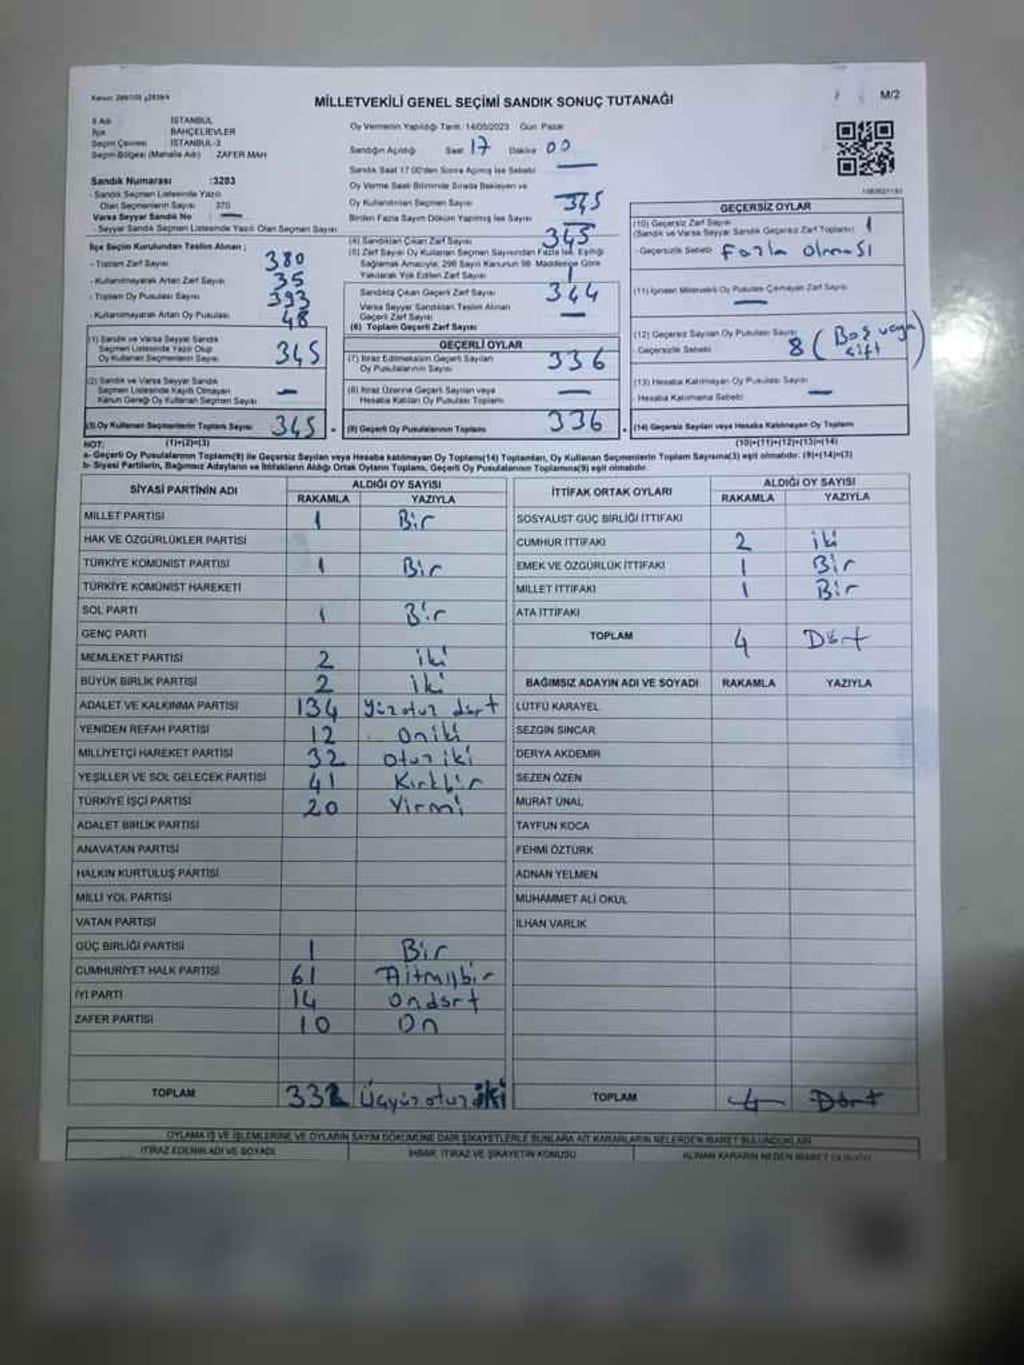 MİLLETVEKİLİ GENEL SEÇİMİ SANDIK SONUÇ TUTANAĞI
M/2
İl Adı İSTANBUL
İlçe BAHÇELİEVLER
Seçim Çevresi İSTANBUL-3
Seçim Bölgesi (Mahalle Adı) ZAFER MAH
Sandık Numarası :3283
- Sandık Seçmen Listesinde Yazılı
Olan Seçmenlerin Sayısı 370
Varsa Seyyar Sandık No —
- Seyyar Sandık Seçmen Listesinde Yazılı Olan Seçmen Sayısı
İlçe Seçim Kurulundan Teslim Alınan ;
- Toplam Zarf Sayısı 380
- Kullanılmayarak Artan Zarf Sayısı 35
- Toplam Oy Pusulası Sayısı 393
- Kullanılmayarak Artan Oy Pusulası 48
(1) Sandık ve Varsa Seyyar Sandık
Seçmen Listesinde Yazılı Olup
Oy Kullanan Seçmenlerin Sayısı 345
(2) Sandık ve Varsa Seyyar Sandık
Seçmen Listesinde Kayıtlı Olmayan
Kanun Gereği Oy Kullanan Seçmen Sayısı —
(3) Oy Kullanan Seçmenlerin Toplam Sayısı 345
Oy Vermenin Yapıldığı Tarih: 14/05/2023 Gün: Pazar
Sandığın Açıldığı Saat 17 Dakika 00
Sandık Saat 17.00'den Sonra Açılmış İse Sebebi —
Oy Verme Saati Bitiminde Sırada Bekleyen ve
Oy Kullandırılan Seçmen Sayısı
Birden Fazla Sayım Döküm Yapılmış İse Sayısı
(4) Sandıktan Çıkan Zarf Sayısı 345
(5) Zarf Sayısı Oy Kullanan Seçmen Sayısından Fazla İse, Eşitliği
Sağlamak Amacıyla, 298 Sayılı Kanunun 98. Maddesine Göre
Yakılarak Yok Edilen Zarf Sayısı
Sandıkta Çıkan Geçerli Zarf Sayısı 344
Varsa Seyyar Sandıktan Teslim Alınan
Geçerli Zarf Sayısı —
(6) Toplam Geçerli Zarf Sayısı
GEÇERLİ OYLAR
(7) İtiraz Edilmeksizin Geçerli Sayılan
Oy Pusulalarının Sayısı 336
(8) İtiraz Üzerine Geçerli Sayılan veya
Hesaba Katılan Oy Pusulası Toplamı —
(9) Geçerli Oy Pusulalarının Toplamı 336
GEÇERSİZ OYLAR
(10) Geçersiz Zarf Sayısı
(Sandık ve Varsa Seyyar Sandık Geçersiz Zarf Toplamı) 1
- Geçersizlik Sebebi Fazla olması
(11) İçinden Milletvekili Oy Pusulası Çıkmayan Zarf Sayısı
—
(12) Geçersiz Sayılan Oy Pusulası Sayısı
- Geçersizlik Sebebi 8 (Boş veya çift)
(13) Hesaba Katılmayan Oy Pusulası Sayısı
- Hesaba Katılmama Sebebi —
(14) Geçersiz Sayılan veya Hesaba Katılmayan Oy Toplamı
NOT: (1)+(2)=(3) (10)+(11)+(12)+(13)=(14)
a- Geçerli Oy Pusulalarının Toplamı(9) ile Geçersiz Sayılan veya Hesaba katılmayan Oy Toplamı(14) Toplamları, Oy Kullanan Seçmenlerin Toplam Sayısına(3) eşit olmalıdır. (9)+(14)=(3)
b- Siyasi Partilerin, Bağımsız Adayların ve İttifakların Aldığı Ortak Oyların Toplamı, Geçerli Oy Pusulalarının Toplamına(9) eşit olmalıdır.
SİYASİ PARTİNİN ADI ALDIĞI OY SAYISI
RAKAMLA YAZIYLA
MİLLET PARTİSİ 1 Bir
HAK VE ÖZGÜRLÜKLER PARTİSİ
TÜRKİYE KOMÜNİST PARTİSİ 1 Bir
TÜRKİYE KOMÜNİST HAREKETİ
SOL PARTİ 1 Bir
GENÇ PARTİ
MEMLEKET PARTİSİ 2 iki
BÜYÜK BİRLİK PARTİSİ 2 iki
ADALET VE KALKINMA PARTİSİ 134 Yüzotuz dört
YENİDEN REFAH PARTİSİ 12 Oniki
MİLLİYETÇİ HAREKET PARTİSİ 32 Otuz iki
YEŞİLLER VE SOL GELECEK PARTİSİ 41 Kırkbir
TÜRKİYE İŞÇİ PARTİSİ 20 Yirmi
ADALET BİRLİK PARTİSİ
ANAVATAN PARTİSİ
HALKIN KURTULUŞ PARTİSİ
MİLLİ YOL PARTİSİ
VATAN PARTİSİ
GÜÇ BİRLİĞİ PARTİSİ 1 Bir
CUMHURİYET HALK PARTİSİ 61 Altmışbir
İYİ PARTİ 14 Ondört
ZAFER PARTİSİ 10 On
TOPLAM 332 Üçyüzotuziki
İTTİFAK ORTAK OYLARI ALDIĞI OY SAYISI
RAKAMLA YAZIYLA
SOSYALİST GÜÇ BİRLİĞİ İTTİFAKI
CUMHUR İTTİFAKI 2 iki
EMEK VE ÖZGÜRLÜK İTTİFAKI 1 Bir
MİLLET İTTİFAKI 1 Bir
ATA İTTİFAKI
TOPLAM 4 Dört
BAĞIMSIZ ADAYIN ADI VE SOYADI RAKAMLA YAZIYLA
LÜTFÜ KARAYEL
SEZGİN SİNCAR
DERYA AKDEMİR
SEZEN ÖZEN
MURAT ÜNAL
TAYFUN KOCA
FEHMİ ÖZTÜRK
ADNAN YELMEN
MUHAMMET ALİ OKUL
İLHAN VARLIK
TOPLAM 4 Dört
OYLAMA İŞ VE İŞLEMLERİNE VE OYLARIN SAYIM DÖKÜMÜNE DAİR ŞİKAYETLERLE BUNLARA AİT KARARLARIN NELERDEN İBARET BULUNDUKLARI
İTİRAZ EDENİN ADI VE SOYADI İHBAR, İTİRAZ VE ŞİKAYETİN KONUSU